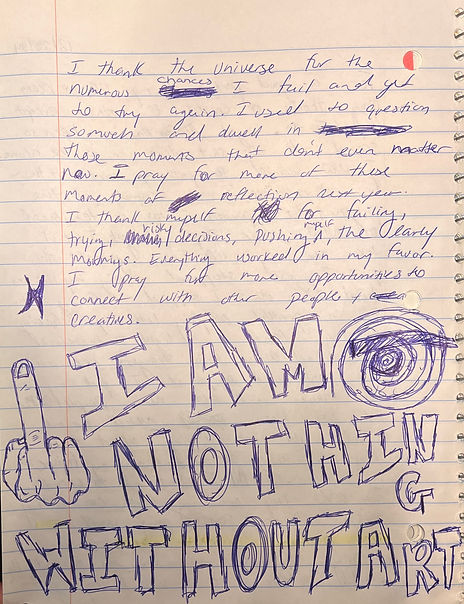 I thank the universe for the
numerous chances I fail and get
to try again. I used to question
somuch and dwell in
those moments that don't even matter
now. I pray for more of these
moments of reflection next year.
I thank myself for failing,
trying, risky decisions, pushing myself, the early
mornings. Everything worked in my favor.
I pray for more opportunities to
connect with other people +
creatives.
I AM
NOTHING
WITHOUT ART